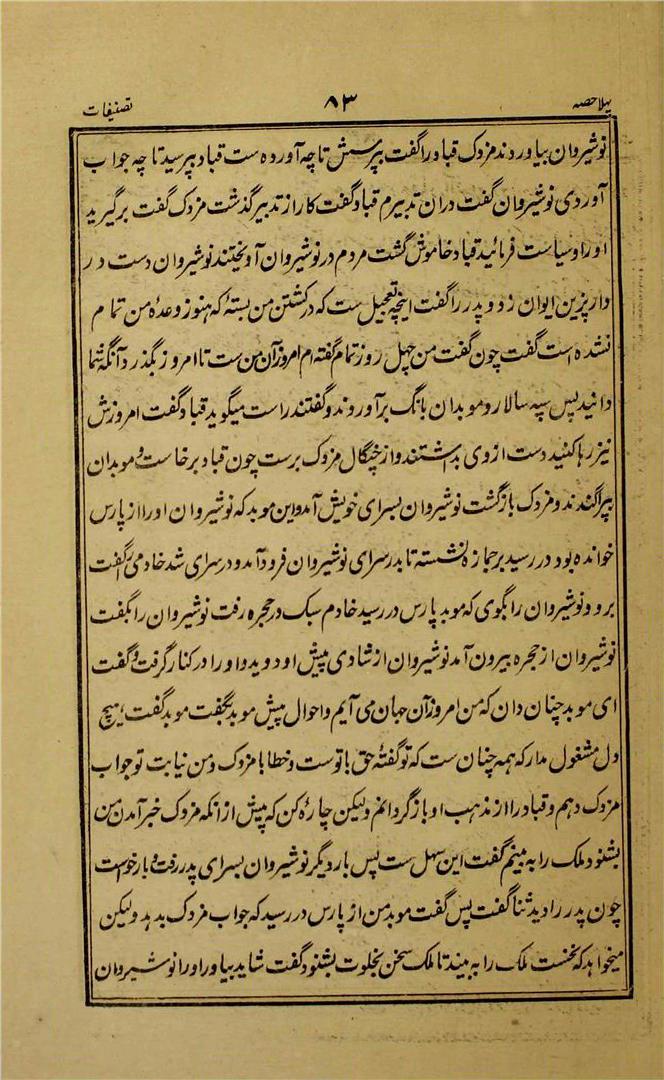 پہلا حصہ ۸۳ تصنیفات
نوشیروان بیاوردند مزدک قباد را گفت بپرسش تا چه آورده ست قباد بپرسید تا چه جواب
آوردی نوشیروان گفت دران تدبیرم قباد گفت کار از تدبیر گذشت مزدک گفت برگیرید
او را و سیاست فرمائید قباد خاموش گشت مردم در نوشیروان آویختند نوشیروان دست در
دارپزین ایوان زد و پدر را گفت اینچه تعجیل ست که در کشتن من بستهٔ که هنوز وعدهٔ من تمام
نشده است گفت چون گفت من چهل روز تمام گفته ام امروز آن من ست تا امروز بگذرد آنگه شما
دانید پس سپه سالار و موبدان بانگ برآوردند و گفتند راست میگوید قباد گفت امروزش
نیز رها کنید دست از وی بداشتند و از چنگال مزدک برست چون قباد برخاست و موبدان
بپراگندند و مزدک بازگشت نوشیروان بسرای خویش آمد و این موبد که نوشیروان او را از پارس
خوانده بود در رسید بر جمازه نشسته تا بدر سرای نوشیروان فرود آمد و در سرای شد خادمی را گفت
برو و نوشیروان را بگوی که موبد پارس در رسید خادم سبک در حجره رفت نوشیروان را بگفت
نوشیروان از حجره بیرون آمد نوشیروان از شادی پیش او دوید و او را در کنار گرفت و گفت
ای موبد چنان دان که من امروز آن جهان می آیم و احوال پیش موبد بگفت موبد گفت هیچ
دل مشغول مدار که همه چنان ست که تو گفتهٔ حق با تو ست و خطا با مزدک و من نیابت تو جواب
مزدک دهم و قباد را از مذهب او باز گردانم ولیکن چارهٔ کن که پیش ازانکه مزدک خبر آمدن من
بشنود ملک را به بینم گفت این سهل ست پس بار دیگر نوشیروان بسرای پدر رفت و بار خواست
چون پدر را دید ثنا گفت پس گفت موبد من از پارس در رسید که جواب مزدک بدهد ولیکن
میخواهد که نخست ملک را به بیند تا ملک سخن بخلوت بشنود گفت شاید بیاور او را نوشیروان